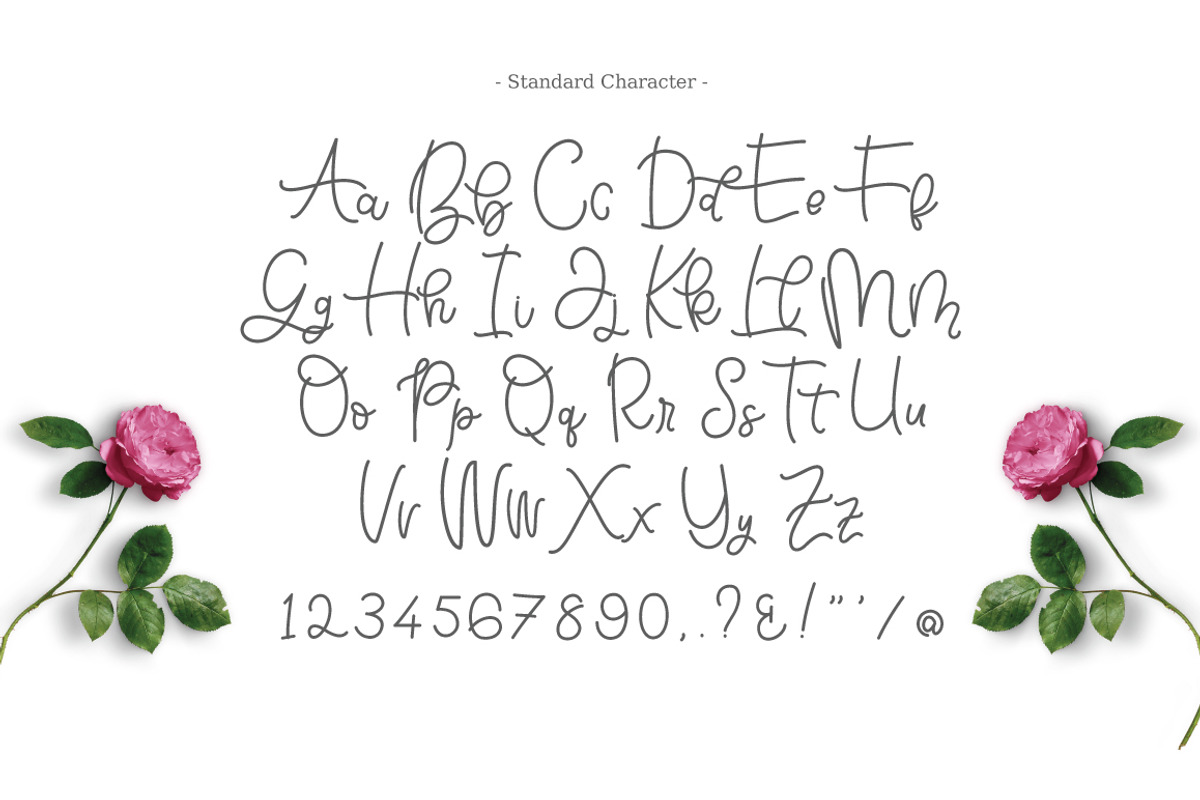 - Standard Character -
Aa Bb Cc Dd Ee Ff
Gg Hh Ii Jj Kk Ll Mm
Oo Pp Qq Rr Ss Tt Uu
Vv Ww Xx Yy Zz
1234567890,.?&!"'' / @